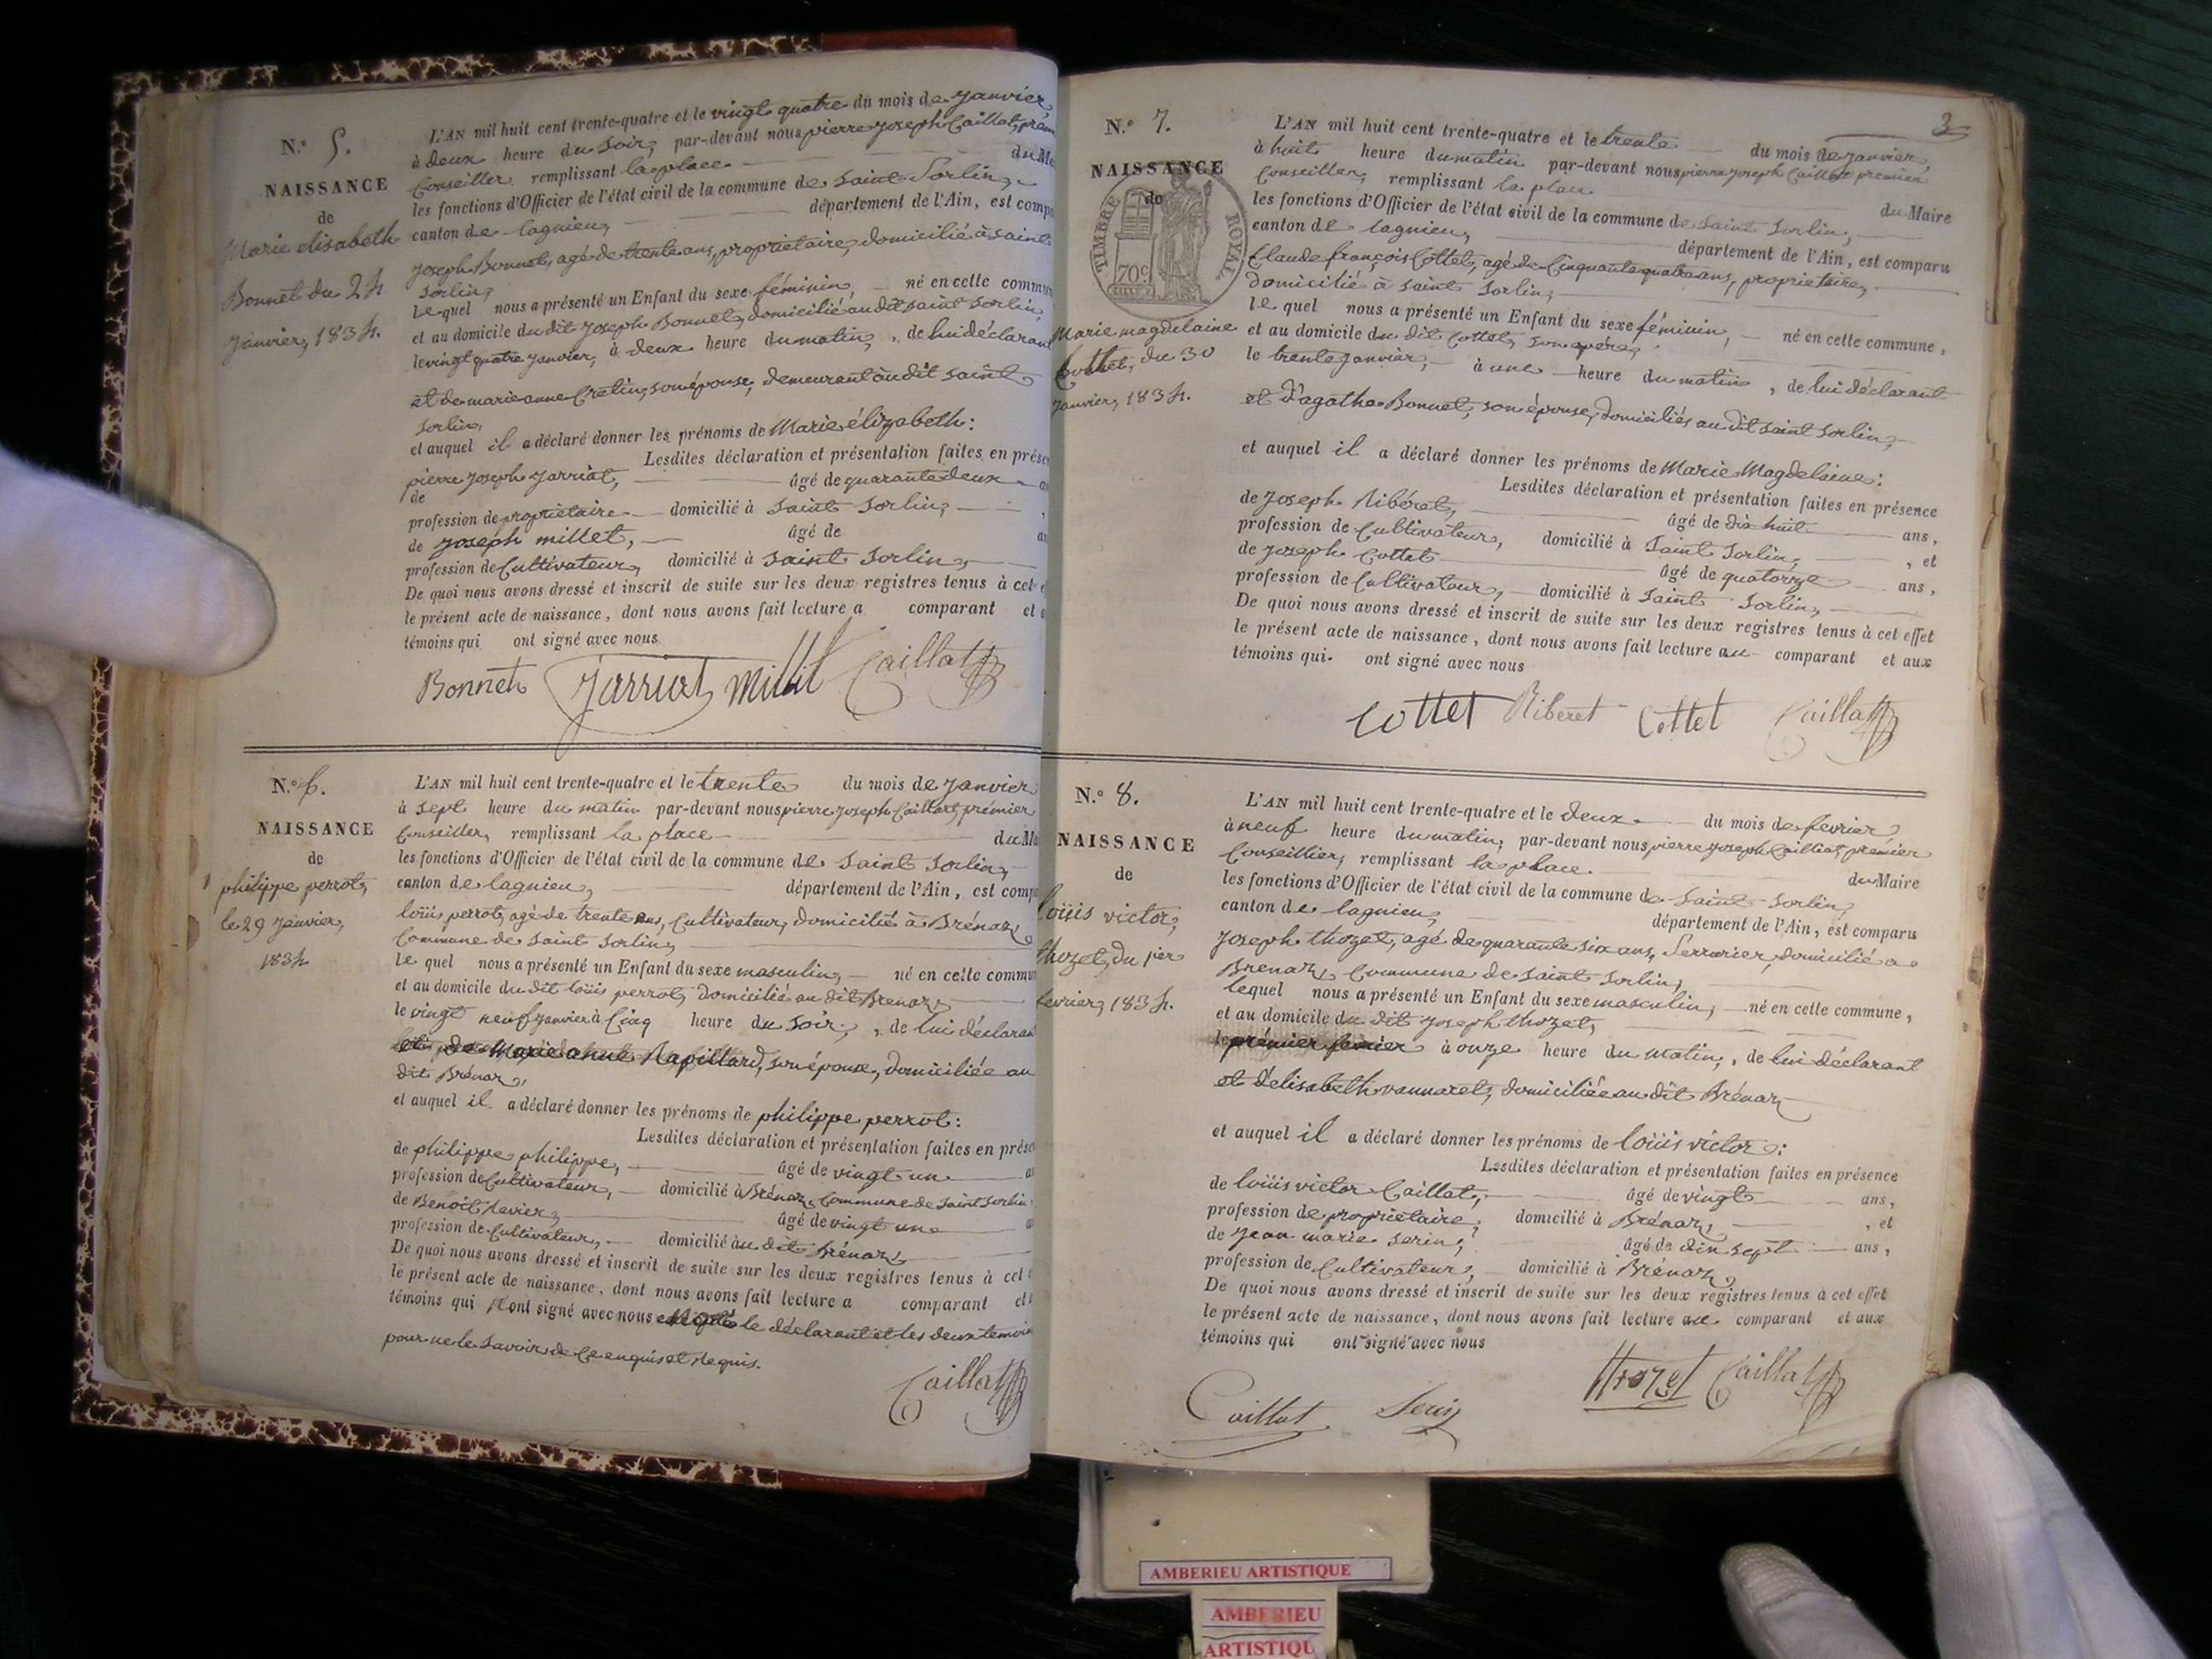 N.° 5.
NAISSANCE
de
Marie elisabeth
Bonnet du 24
janvier, 1834.
L'AN mil huit cent trente-quatre et le vingt quatre du mois de janvier
à deux heure du soir, par-devant nous pierre joseph Caillat, prém
Conseiller remplissant la place du M
les fonctions d'Officier de l'état civil de la commune de saint Sorlin,
canton de lagnieu, département de l'Ain, est comp
joseph Bonnet, agé de trente ans, propriétaire, domicilié à saint
Sorlin,
Le quel nous a présenté un Enfant du sexe féminin, né en cette commun
et au domicile du dit joseph Bonnet, domicilié au dit saint Sorlin,
le vingt quatre janvier, à deux heure du matin, de lui déclarant
et de marie anne Cretin, son épouse, demeurant au dit saint
Sorlin,
et auquel il a déclaré donner les prénoms de Marie élizabeth :
Lesdites déclaration et présentation faites en prése
pierre joseph jarriat, âgé de quarante deux
de
profession de propriétaire domicilié à saint Sorlin,
de joseph millet, âgé de
profession de Cultivateur, domicilié à saint Sorlin,
De quoi nous avons dressé et inscrit de suite sur les deux registres tenus à cet
le présent acte de naissance, dont nous avons fait lecture a comparant et
témoins qui ont signé avec nous
Bonnet Jarriat millet Caillat
N.° 6.
NAISSANCE
de
philippe perrot,
le 29 janvier,
1834
L'AN mil huit cent trente-quatre et le trente du mois de janvier
à sept heure du matin par-devant nous pierre joseph Caillat, prémier
Conseiller, remplissant la place du M
les fonctions d'Officier de l'état civil de la commune de saint Sorlin,
canton de lagnieu, département de l'Ain, est comp
loüis perrot, agé de trente ans, Cultivateur, domicilié à Brénaz,
Commune de saint Sorlin,
Le quel nous a présenté un Enfant du sexe masculin, né en cette commun
et au domicile du dit loüis perrot, domicilié au dit Brenaz,
le vingt neuf janvier à Cinq heure du soir, de lui déclaran
et de Marie anne Rapillard, son épouse, domiciliée au
dit Brénaz,
et auquel il a déclaré donner les prénoms de philippe perrot :
Lesdites déclaration et présentation faites en prése
de philippe philippe, âgé de vingt un
profession de Cultivateur, domicilié à Brénaz, Commune de saint Sorlin
de Benoit Xavier, âgé de vingt un
profession de Cultivateur, domicilié au dit Brénaz,
De quoi nous avons dressé et inscrit de suite sur les deux registres tenus à cet
le présent acte de naissance, dont nous avons fait lecture a comparant et
témoins qui N'ont signé avec nous le déclarant et les deux temoin
pour ne le savoir de Ce enquis et requis.
Caillat
3
N.° 7.
NAISSANCE
de
TIMBRE ROYAL
70c
Marie magdelaine
Cottet, du 30
janvier, 1834.
L'AN mil huit cent trente-quatre et le trente du mois de janvier,
à huit heure du matin par-devant nous pierre joseph Caillat premier
Conseiller, remplissant la place du Maire
les fonctions d'Officier de l'état civil de la commune de saint Sorlin,
canton de lagnieu, département de l'Ain, est comparu
Claude françois Cottet, agé de Cinquante quatre ans, propriétaire,
domicilié à saint Sorlin,
le quel nous a présenté un Enfant du sexe féminin, né en cette commune,
et au domicile du dit Cottet, son père,
le trente janvier, à une heure du matin, de lui déclarant
et d'agathe Bonnet, son épouse, domiciliés au dit saint Sorlin,
et auquel il a déclaré donner les prénoms de Marie Magdelaine :
Lesdites déclaration et présentation faites en présence
de joseph Ribéret, âgé de dix huit ans,
profession de Cultivateur, domicilié à Saint Sorlin, , et
de joseph Cottet âgé de quatorze ans,
profession de Cultivateur, domicilié à Saint Sorlin,
De quoi nous avons dressé et inscrit de suite sur les deux registres tenus à cet effet
le présent acte de naissance, dont nous avons fait lecture au comparant et aux
témoins qui ont signé avec nous
Cottet Riberet Cottet Caillat
N.° 8.
NAISSANCE
de
loüis victor,
thozet, du 1er
fevrier, 1834.
L'AN mil huit cent trente-quatre et le deux du mois de fevrier,
à neuf heure du matin, par-devant nous pierre joseph Cailliat, premier
Conseillier, remplissant la place du Maire
les fonctions d'Officier de l'état civil de la commune de Saint Sorlin,
canton de lagnieu, département de l'Ain, est comparu
joseph thozet, agé de quarante six ans, Serrurier, domicilié a
Brenaz, Commune de saint Sorlin,
lequel nous a présenté un Enfant du sexe masculin, né en cette commune,
et au domicile du dit joseph thozet,
le prémier fevrier à onze heure du matin, de lui déclarant
et d'élisabeth vannaret, domiciliée au dit Brénaz
et auquel il a déclaré donner les prénoms de loüis victor :
Lesdites déclaration et présentation faites en présence
de loüis victor Caillat, âgé de vingt ans,
profession de propriétaire, domicilié à Brénaz, , et
de jean marie serin, âgé de dix sept ans,
profession de Cultivateur, domicilié à Brénaz,
De quoi nous avons dressé et inscrit de suite sur les deux registres tenus à cet effet
le présent acte de naissance, dont nous avons fait lecture au comparant et aux
témoins qui ont signé avec nous
Caillat Serin thozet Caillat
AMBERIEU ARTISTIQUE
AMBERIEU
ARTISTIQU